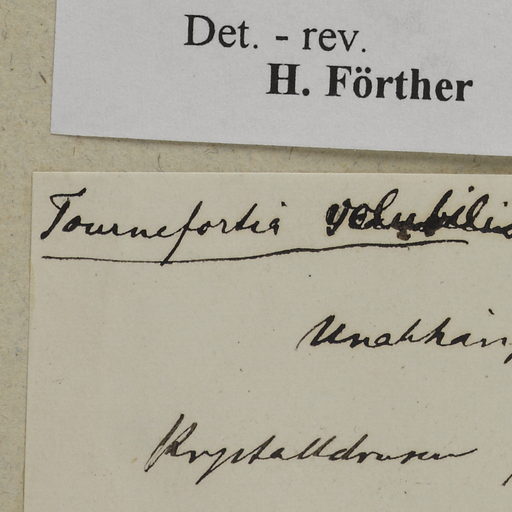 Det. - rev.
H. Förther
Tournefortia volubilis
Unabhäng
Krystalldrusen